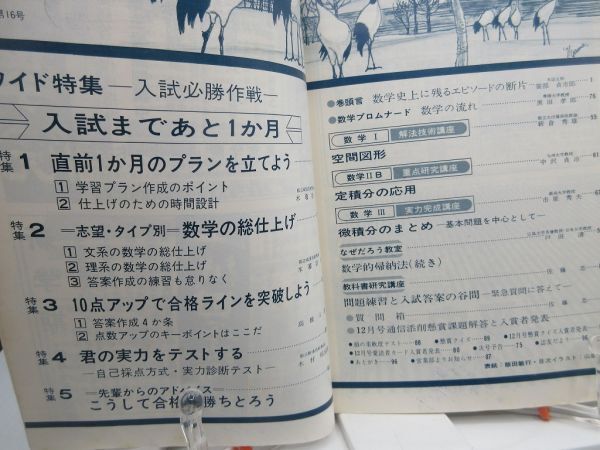 第16号
ワイド特集 ―入試必勝作戦―
入試まであと1か月
特集1 直前1か月のプランを立てよう
1 学習プラン作成のポイント
2 仕上げのための時間設計
特集2 ―志望・タイプ別―数学の総仕上げ
1 文系の数学の総仕上げ
2 理系の数学の総仕上げ
3 答案作成の練習も怠りなく
特集3 10点アップで合格ラインを突破しよう
1 答案作成4か条
2 点数アップのキーポイントはここだ
特集4 君の実力をテストする
―自己採点方式・実力診断テスト―
特集5 ―先輩からのアドバイス―
こうして合格 勝ちとろう
●巻頭言 数学史上に残るエピソードの断片
●数学プロムナード 数学の流れ
数学Ⅰ 解法技術講座
空間図形
数学ⅡB 重点研究講座
定積分の応用
数学Ⅲ 実力完成講座
微積分のまとめ ―基本問題を中心として―
なぜだろう教室
数学的帰納法(続き)
教科書研究講座
問題練習と入試答案の谷間 ―緊急質問に答えて―
●質問箱
●12月号通信添削懸賞課題解答と入賞者発表
●頭の柔軟テスト ●懸賞クイズ ●12月号懸賞クイズ入賞者発表
●12月号愛読者カード入賞者発表 ●次号予告 ●読者だより
●あとがき 96 ●営業部よりお知らせ